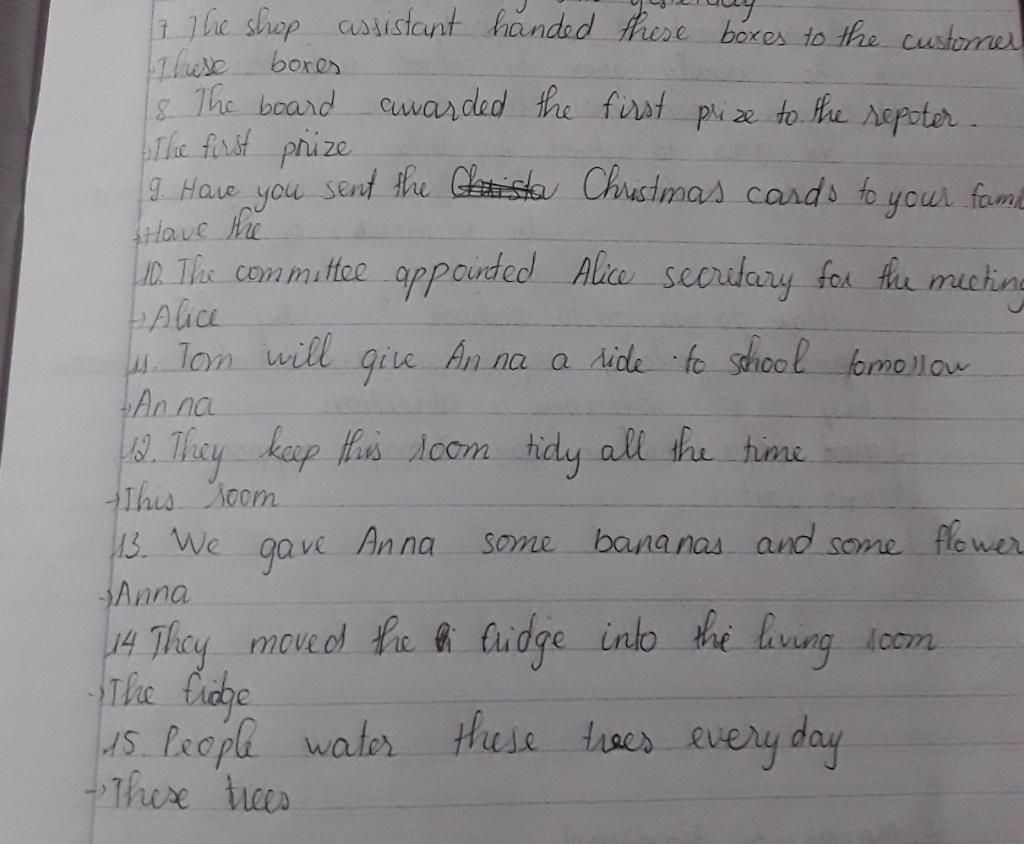 yesterday
7. The shop assistant handed these boxes to the customer
→ These boxes
8. The board awarded the first prize to the repoter.
→ The first prize
9. Have you sent the Christmas cards to your fami
→ Have the
10. The committee appointed Alice secretary for the meeting
→ Alice
11. Tom will give Anna a ride to school tomorrow
→ Anna
12. They keep this room tidy all the time
→ This room
13. We gave Anna some bananas and some flower
→ Anna
14 They moved the fridge into the living room
→ The fridge
15. People water these trees everyday
→ These trees